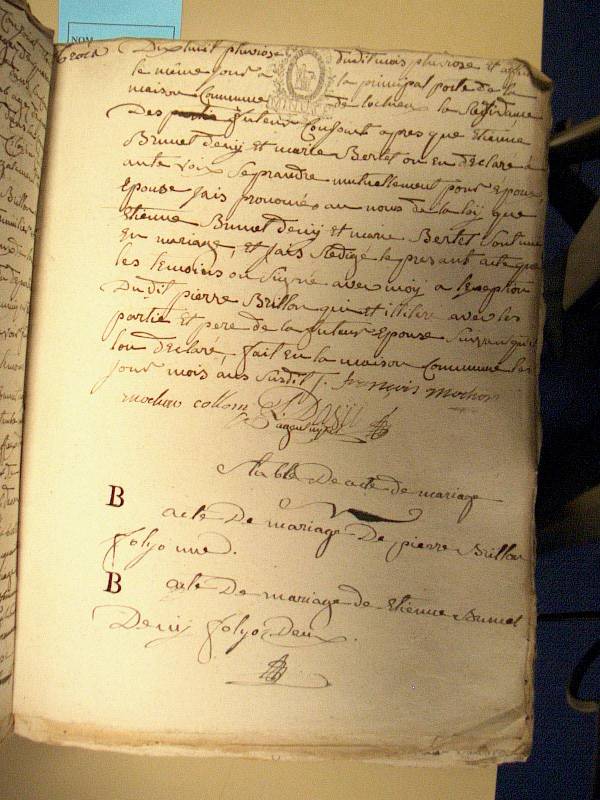 NOM
Dixhuit pluviose dudit mois pluviose et
le même jour a la principal porte de la
maison Commune de la Residance
Des futeur Conjoint apres que Etienne
Brunet denij Et marie Bertet on En déclaré a
aute voix Se prandre mutuellement pour Epoux
Epouse jais prononcés au nons de la loÿ que
Etienne Brunet Denij Et marie Bertet Sont uni
En mariage, Et jais Redigé le presant acte que
les temoins on Signé avec moÿ a lexeption
Dudit pierre Brillon qui Et illitere avec les
partie Et pere de la futeur Epouse
lon déclaré, fait En la maison Commune les
jour mois ans Susdit /. françois mochon
mochon collom Denij

table De acte de mariage
B acte De mariage De pierre Brillon
folyo une.
B acte De mariage de Etienne Brunet
Denij folyo Deux.